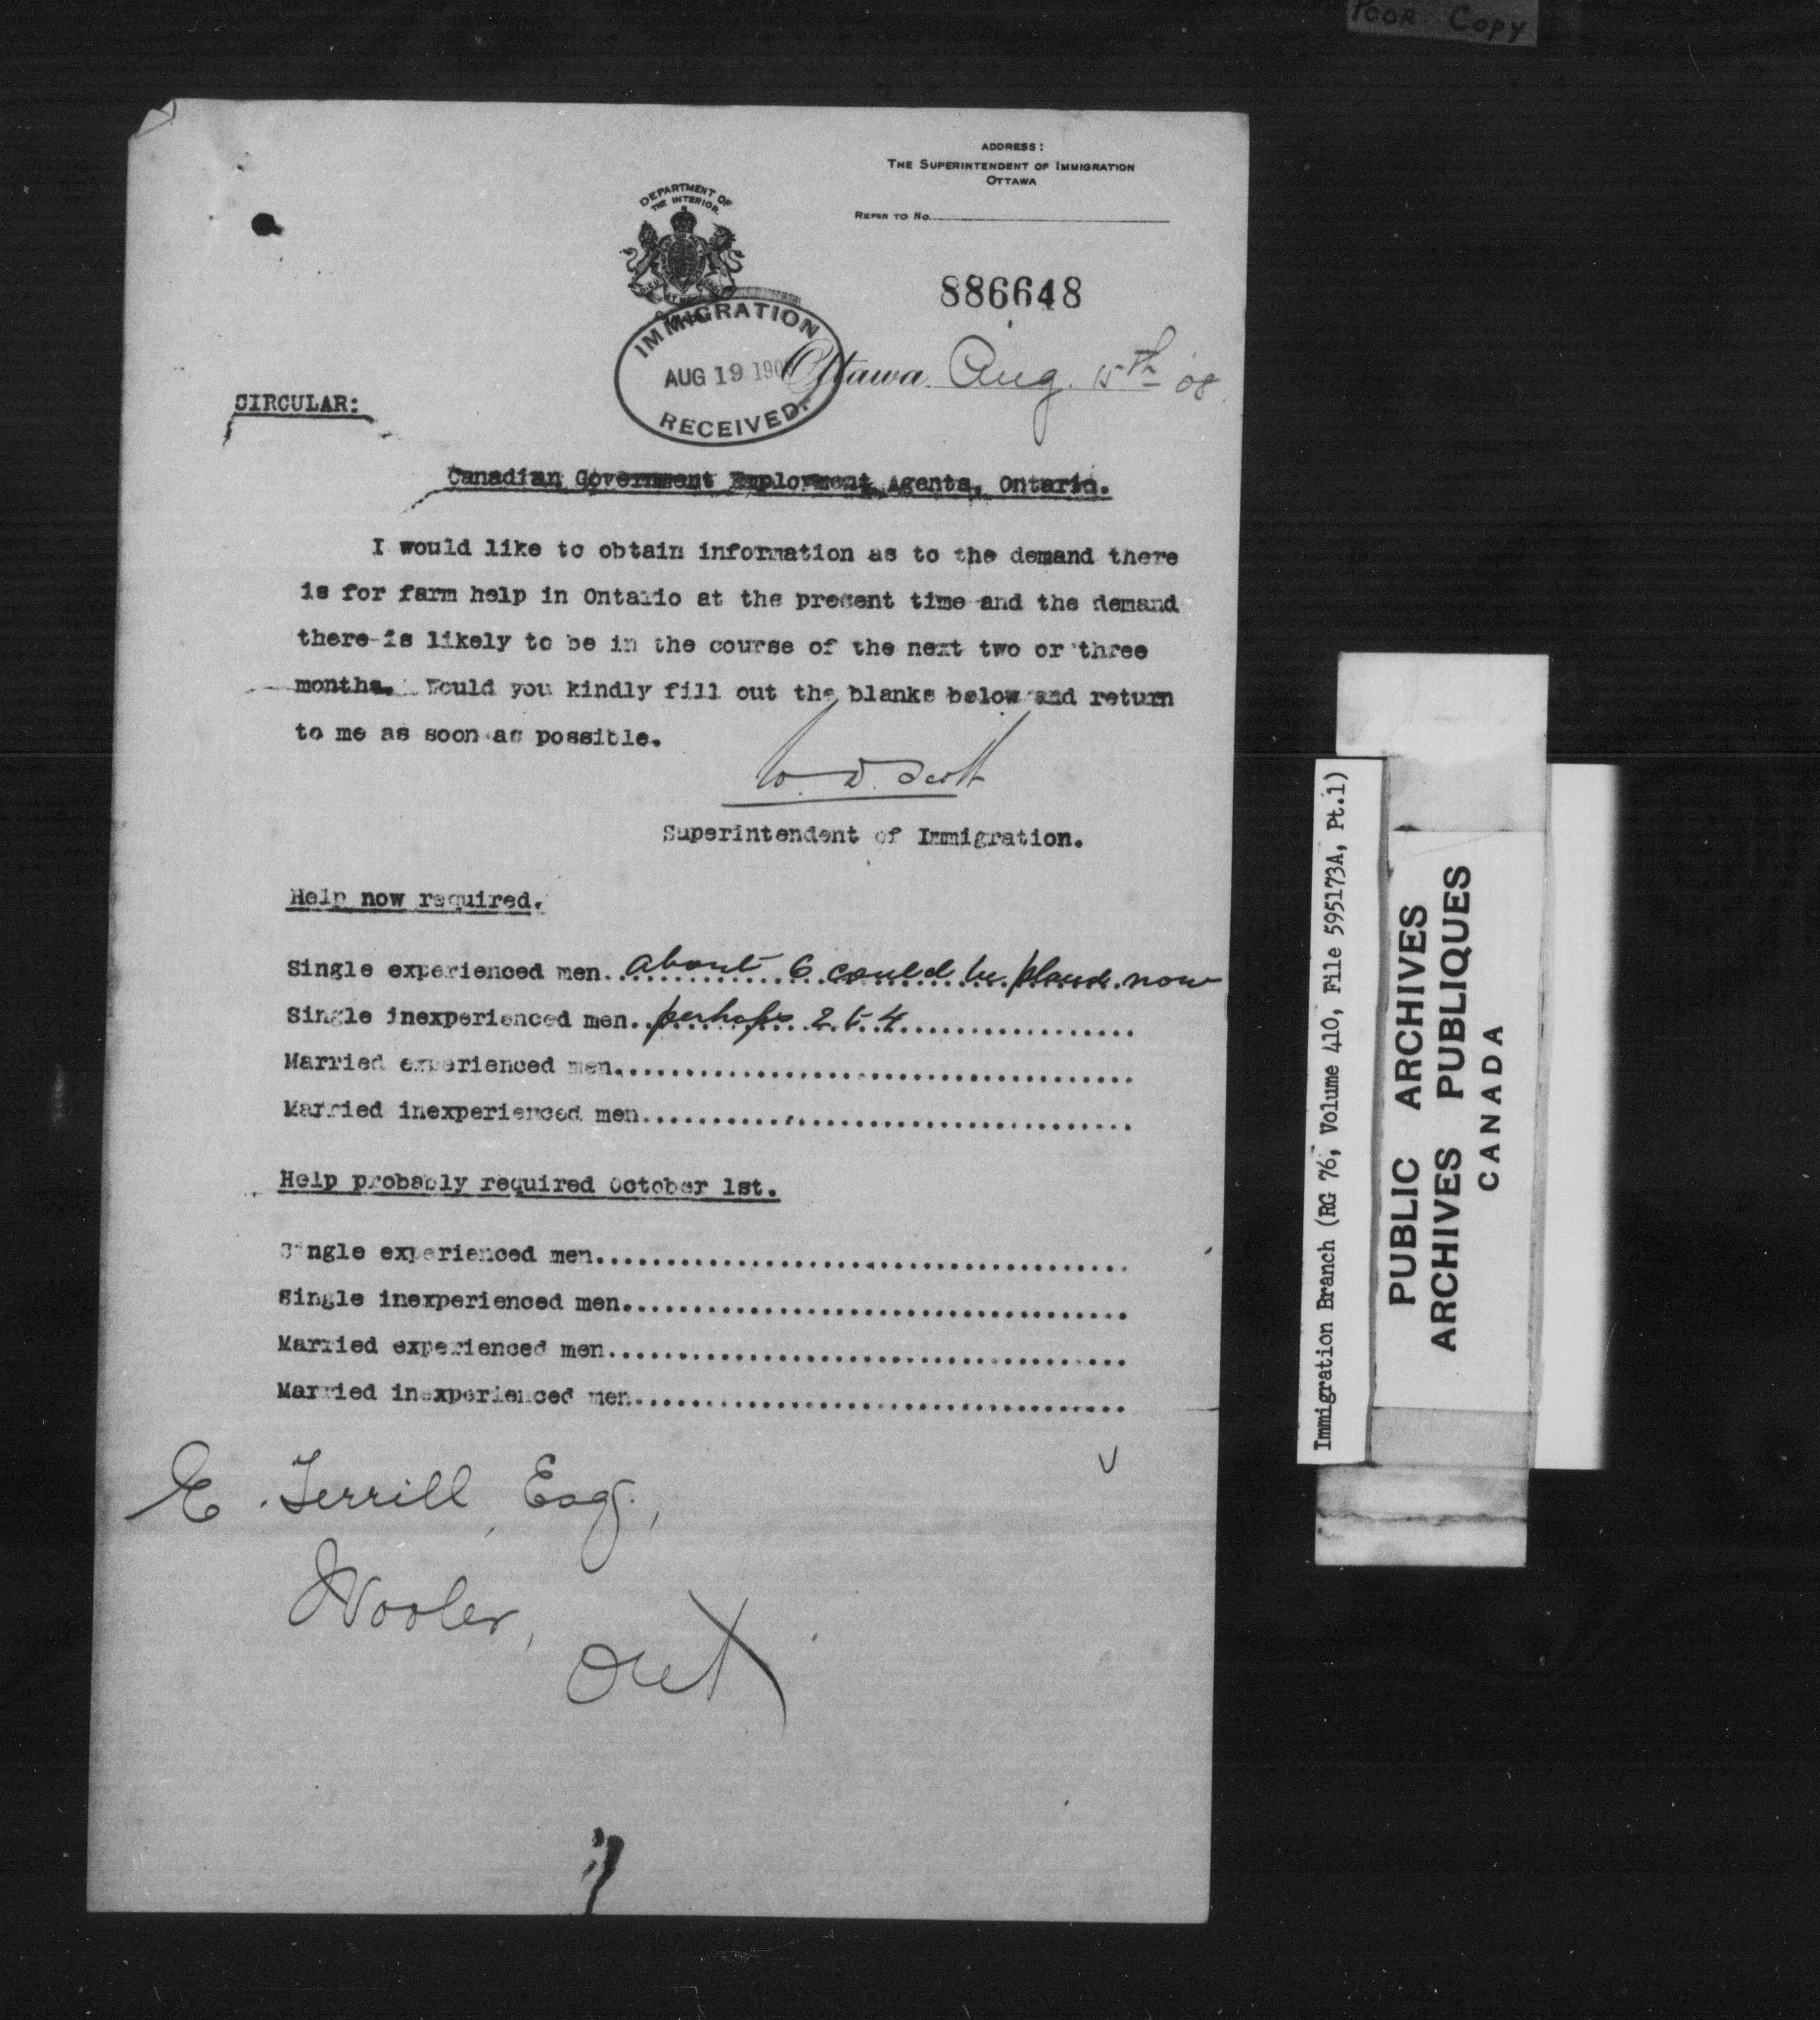 POOR COPY
ADDRESS:
THE SUPERINTENDENT OF IMMIGRATION
OTTAWA
REFER TO No.
DEPARTMENT OF
THE INTERIOR.
886648
IMMIGRATION
AUG 19 190
RECEIVED.
Ottawa. Aug. 15th 08.
CIRCULAR:
Canadian Government Employment Agents, Ontario.
I would like to obtain information as to the demand there
is for farm help in Ontario at the present time and the demand
there is likely to be in the course of the next two or three
months. Would you kindly fill out the blanks below and return
to me as soon as possible.
W. D. Scott
Superintendent of Immigration.
Help now required.
Single experienced men. about 6 could be placed now
Single inexperienced men. perhaps 2 to 4
Married experienced men.
Married inexperienced men.
Help probably required October 1st.
Single experienced men.
Single inexperienced men.
Married experienced men.
Married inexperienced men.
E. Terrill, Esq.,
Wooler,
Ont
Immigration Branch (RG 76, Volume 410, File 595173A, Pt.1)
PUBLIC ARCHIVES
ARCHIVES PUBLIQUES
CANADA